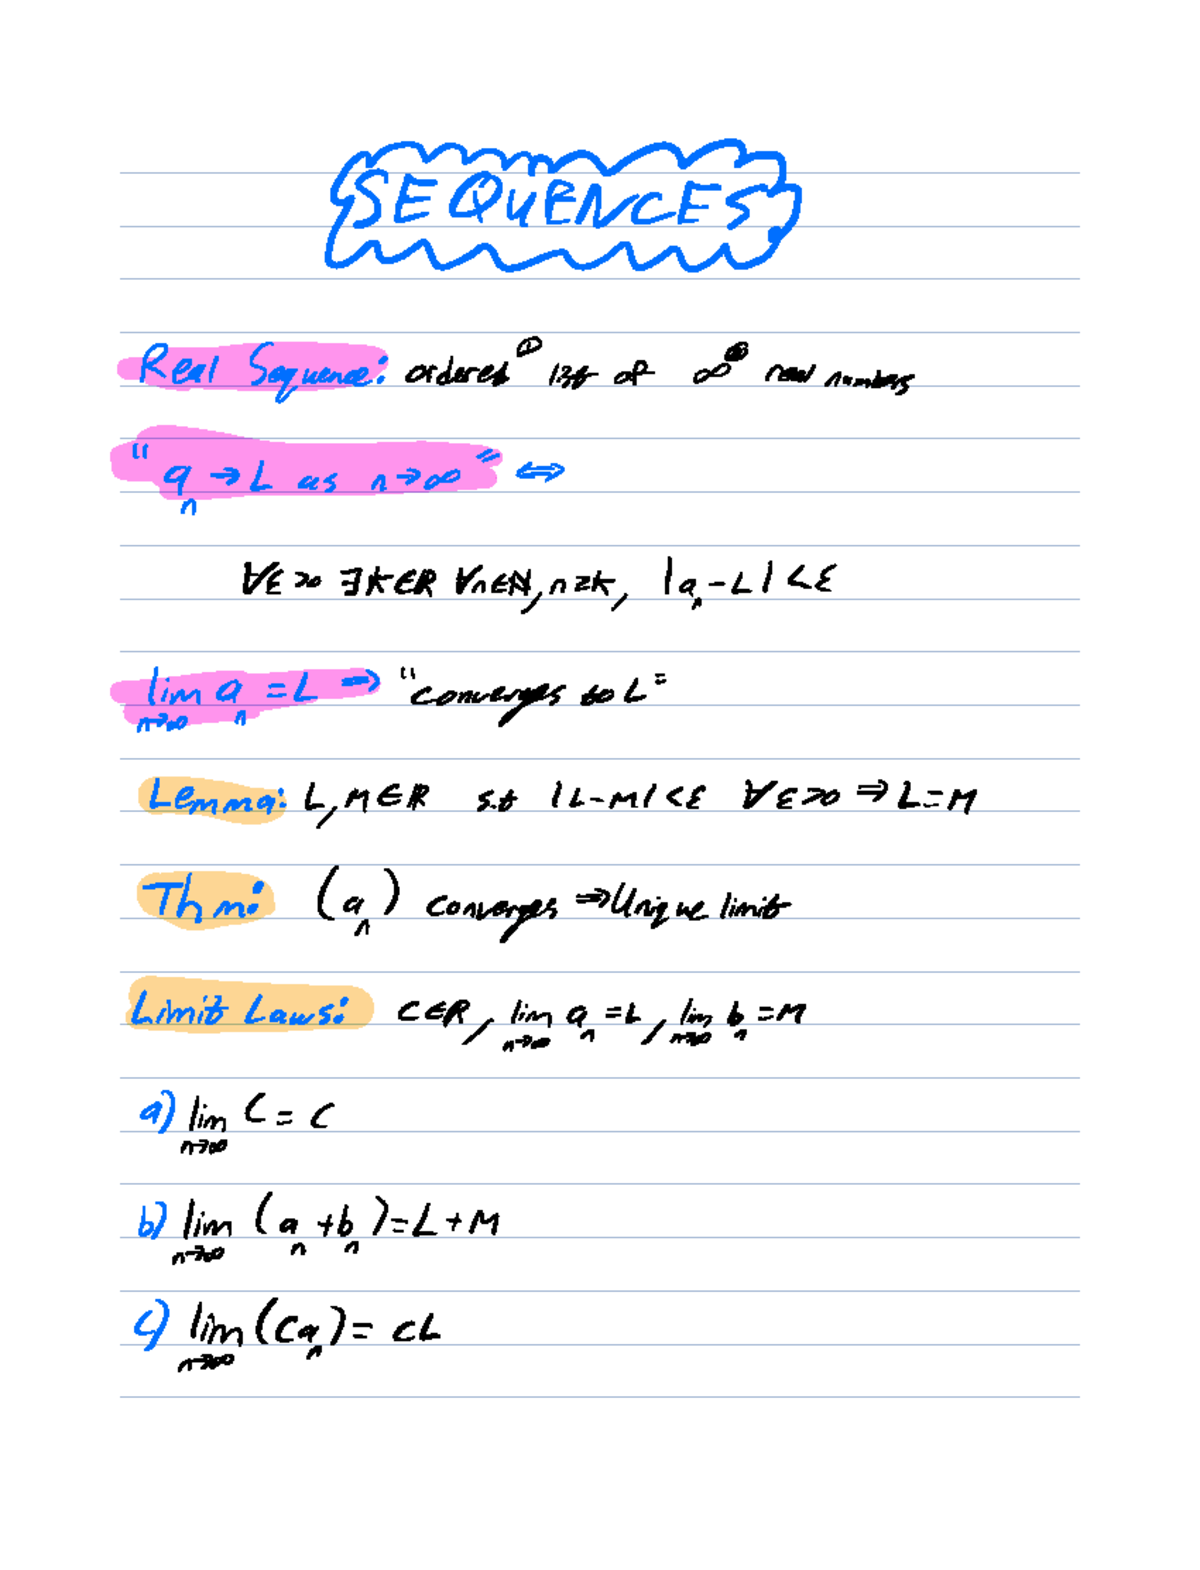 SEQUENCES
Real Sequence: ordered① list of ∞② real numbers
"aₙ → L as n→∞" ⇔
∀ε>0 ∃k∈ℝ ∀n∈ℕ, n≥k, |aₙ-L|<ε
lim n→∞ aₙ = L ⇒ "converges to L"
Lemma: L,M∈ℝ s.t |L-M|<ε ∀ε>0 ⇒ L=M
Thm: (aₙ) converges ⇒ Unique limit
Limit Laws: C∈ℝ, lim n→∞ aₙ = L, lim n→∞ bₙ = M
a) lim n→∞ C = C
b) lim n→∞ (aₙ+bₙ) = L+M
c) lim n→∞ (Caₙ) = CL